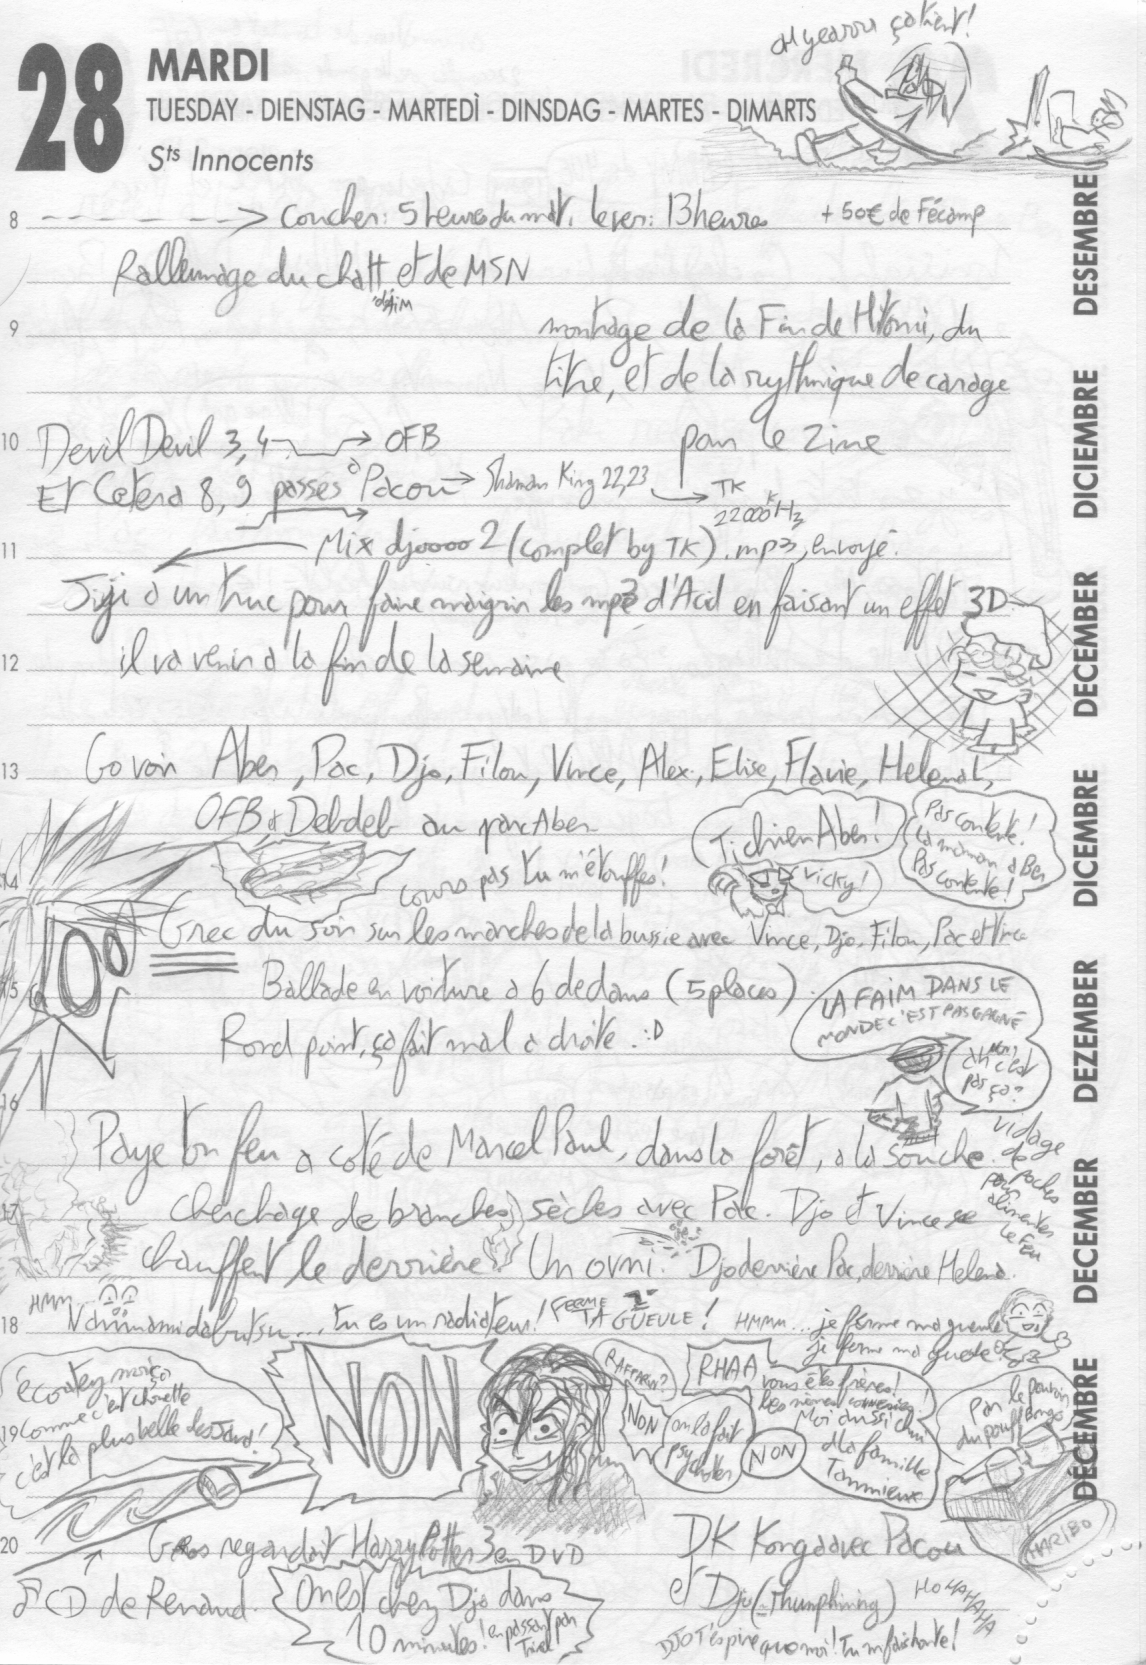 28
MARDI
TUESDAY - DIENSTAG - MARTEDÌ - DINSDAG - MARTES - DIMARTS
Sts Innocents
oh yearou ça tient!
8 → coucher: 5 heures du mat. lever: 13 heures + 50€ de Fécamp
Rallumage du chatt et de MSN
d'AIM
9 montage de la Fin de Hitomi, du
titre, et de la rythmique de carage
10 Devil Devil 3, 4 → OFB pour le zine
Et Cetera 8, 9 passés à Pacou → Shaman King 22, 23 → TK
22000 Hz
11 Mix djoooo 2 (complet by TK) .mp3, envoyé.
Jiji a un truc pour faire maigrir les mp3 d'Acid en faisant un effet 3D
12 il va venir à la fin de la semaine
13 Go voir Aber, Pac, Djo, Filou, Vince, Alex, Elise, Flavie, Helena L,
OFB & Debdeb au parc Aber
Ti chien Aber!
Pas contente!
la maman à Ben
Pas contente!
14 cours pas tu m'étouffes!
Vicky!
Grec du soir sur les marches de la bussie avec Vince, Djo, Filou, Pac et
15 Ballade en voiture à 6 dedans (5 places)
LA FAIM DANS LE
MONDE C'EST PAS GAGNÉ
Rond point, ça fait mal à droite. :D
ah non, c'est
pas ça?
16
Paye ton feu a côté de Marcel Paul, dans la forêt, à la souche.
vidage
de
poches
pour
alimenter
le feu
17 cherchage de branches sèches avec Pac. Djo et Vince se
chauffent le derrière. Un ovni. Djo derrière Pac, derrière Helena.
HMM...
18 tu es un radiateur! FERME TA GUEULE! HMMM... je ferme ma gueule
je ferme ma gueule
écoutez moi ça
19 comme c'est chouette
c'est la plus belle des
NON
RAFFARIN?
NON
on l'a fait
psychoter
NON
RHAA
vous êtes frères!
Moi aussi chui
d'la famille
Tannieux
Par le pouvoir
du pouf Bongo
20 Gros regardait Harry Potter 3 en DVD
DK Konga avec Pacou
HARIBO
♂ CD de Renaud.
On est chez Djo dans
10 minutes!
en passant par
et Djo (Thumphining)
HOHAHAHA
DJO T'es pire que moi! Tu m'fais honte!
DESEMBRE
DICIEMBRE
DECEMBER
DICEMBRE
DEZEMBER
DECEMBER
DÉCEMBRE